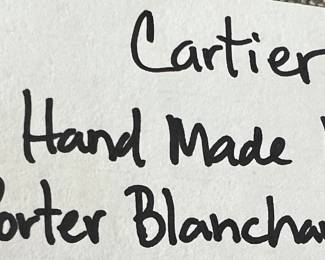 Cartier
Hand Made
orter Blancha